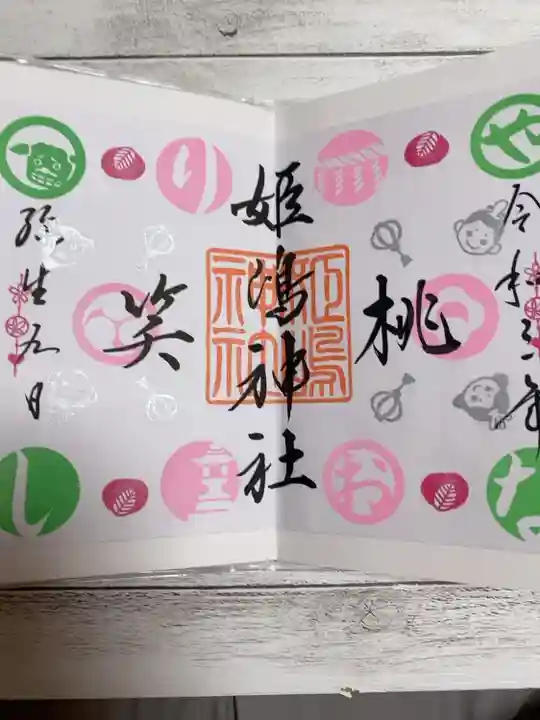 令和三年
桃
姫嶋神社
笑
弥生五日
姫嶋
神社
や
お
の
し